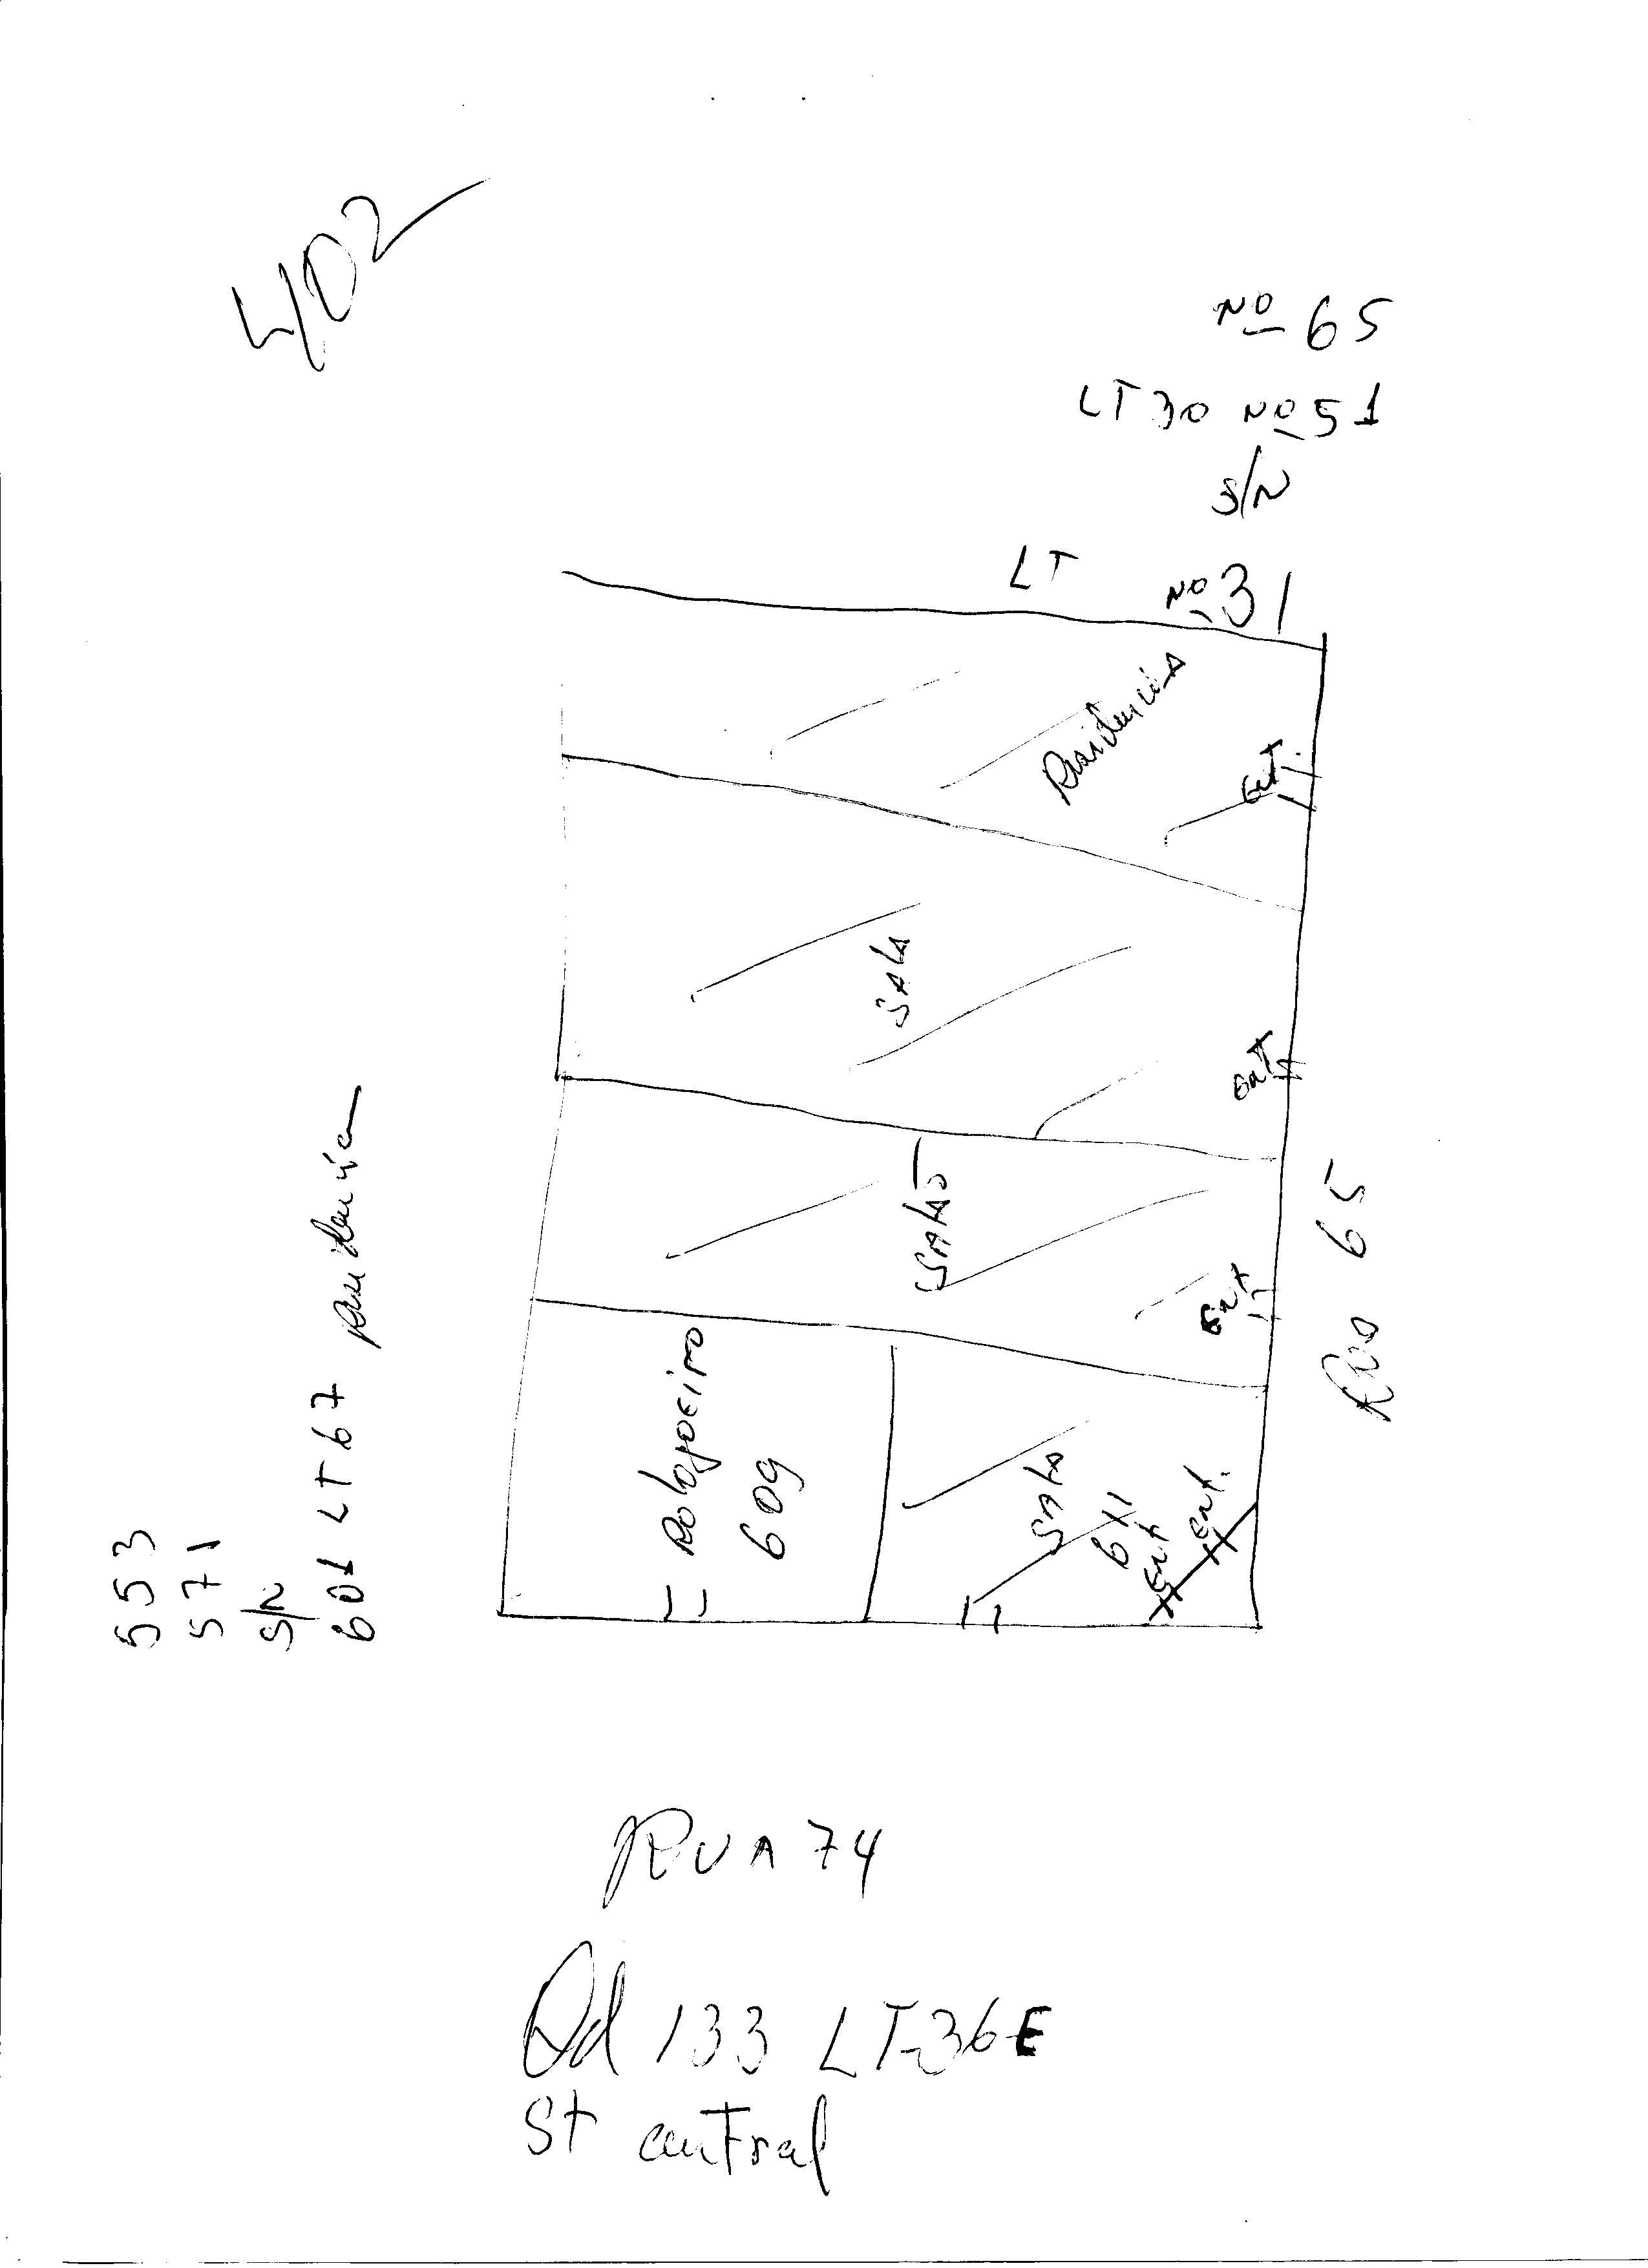 402
Nº 65
LT 30 Nº 51
S/N
LT Nº 31
Residencia
ent.
SALA
ent
SALÃO
ent
Rua 65
553
571
S/N
601 LT 67 residencia
Relojoeiro
609
SALA
611
ent
ent.
RUA 74
Qd 133 LT-36E
St central